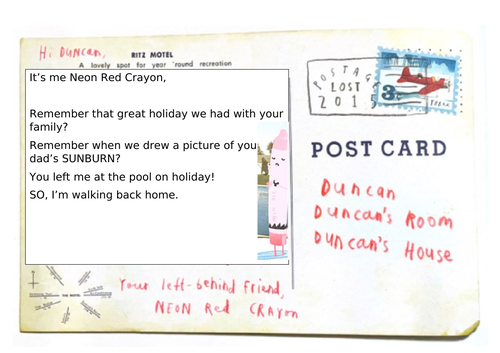 Hi Duncan,
RITZ MOTEL
A lovely spot for year 'round recreation
It's me Neon Red Crayon,
Remember that great holiday we had with your
family?
Remember when we drew a picture of you
dad's SUNBURN?
You left me at the pool on holiday!
SO, I'm walking back home.
Your left-behind friend,
NEON Red CRAYon
POSTAGE
LOST
2015
3
POST CARD
Duncan
Duncan's Room
Duncan's House